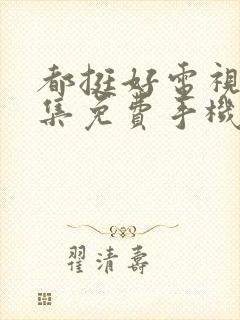 都挺好電視
集免費手機
翟清壽